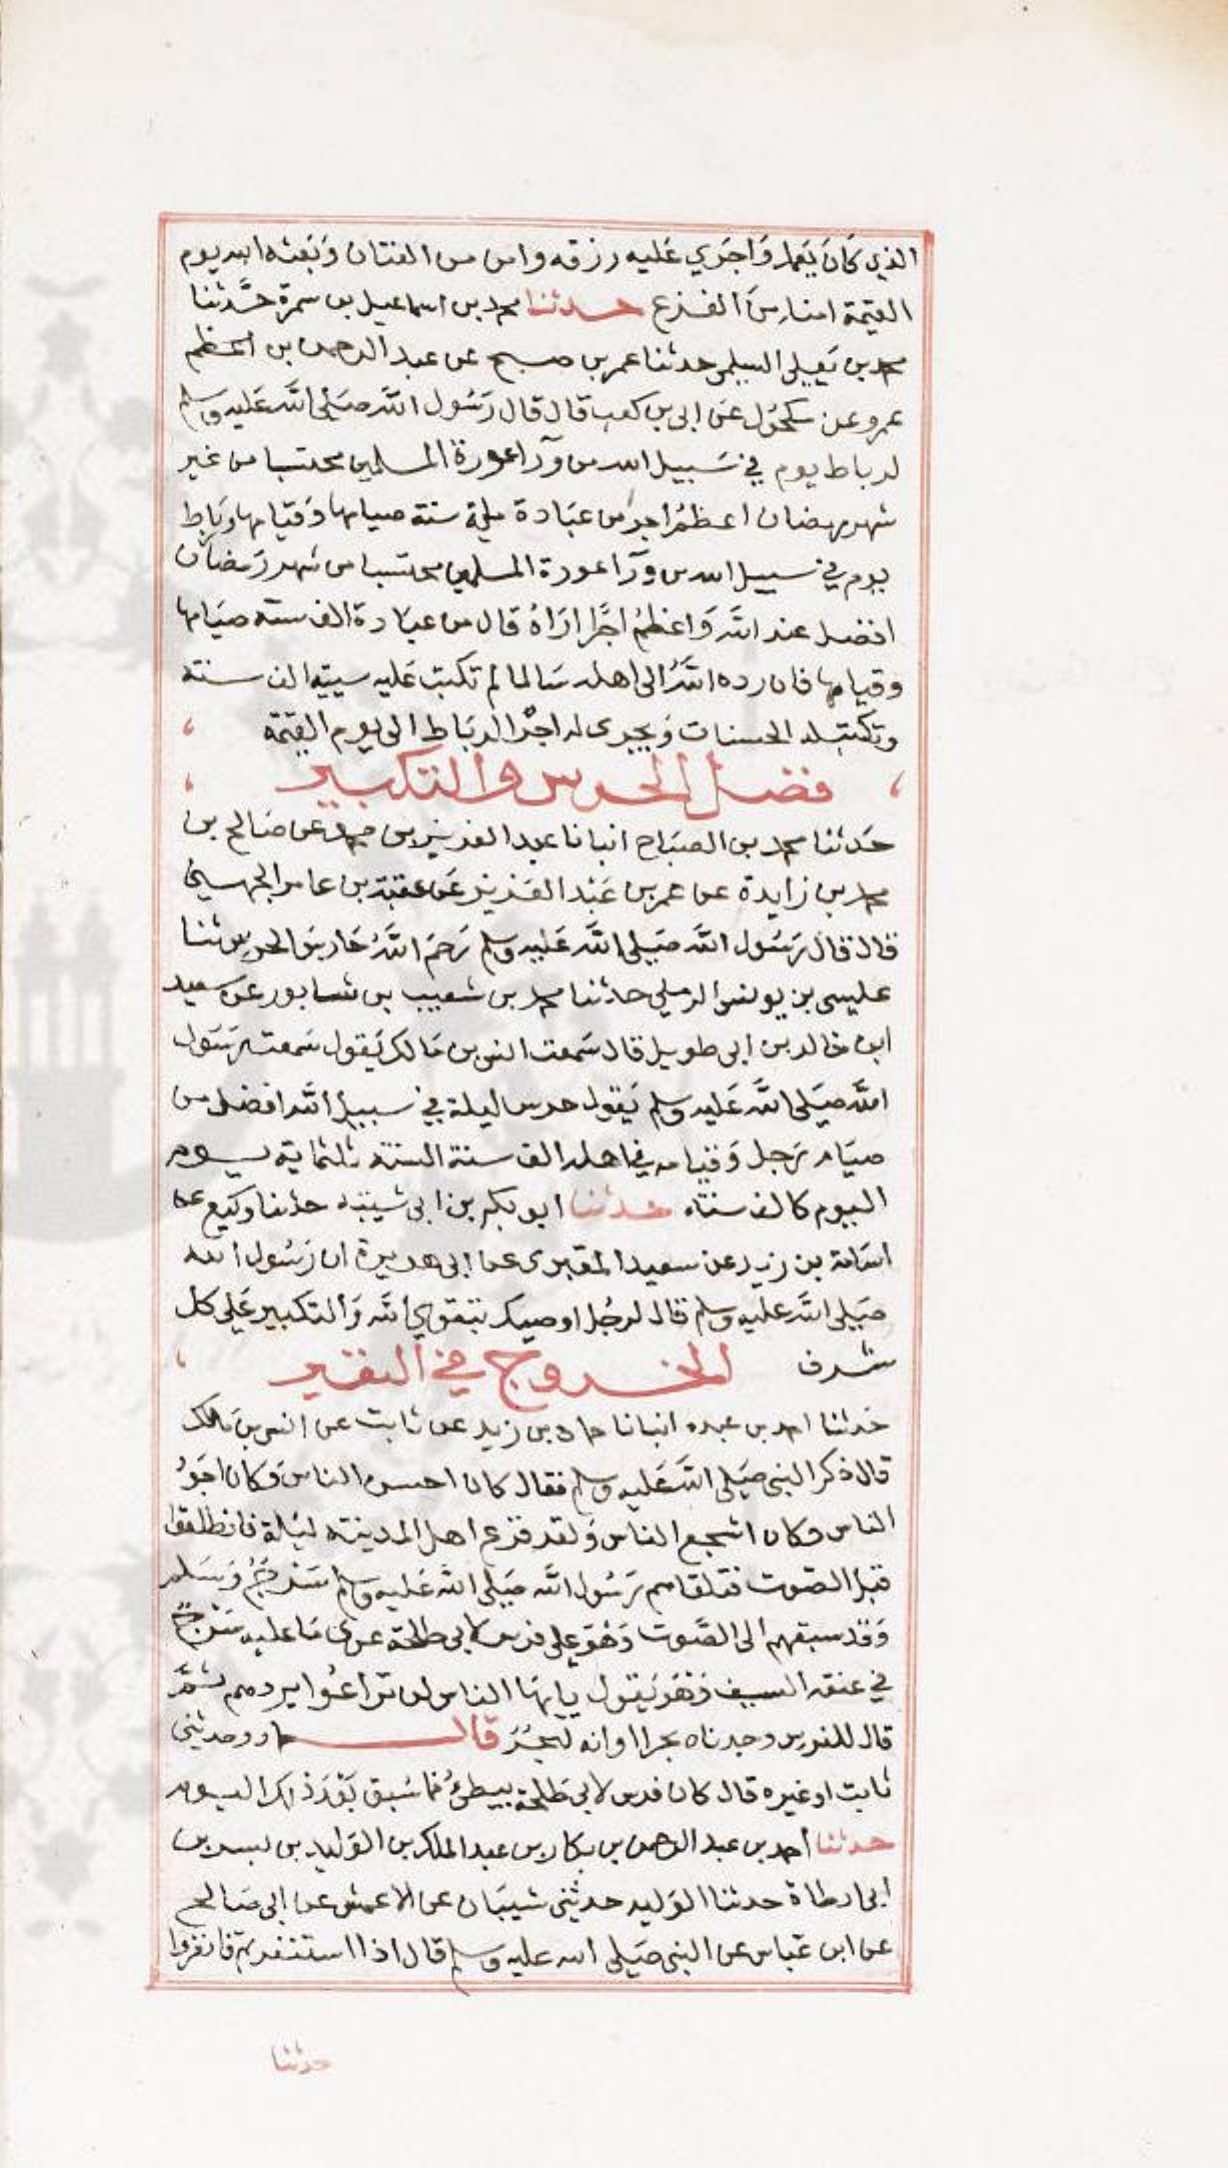 الذي كَانَ يَعمل وَاجري عَليه رزقه وامن من الفتان وَبَعثه الله يوم
القيمة امنا مِنَ الفزع حدثنا محمد بن اسماعيل بن سمرة حَدَّثنا
محمد بن يَعلى السلمي حدثنا عمر بن صبح عن عبد الرحمن بن
عمرو عن مكحول عَن ابي بن كعب قال قال رَسُول اللَّه صَلى اللَّه عَليه وسلم
لرباط يوم في سَبيل الله من وَرآ عورة المسلمين محتسبا من غير
شهر رمضان اعظمُ اجرا من عبَادة ماية سنة صيامها وَقيامها ورباط
يوم في سبيل الله من ورآ عورة المسلمين محتسبا من شهر رَمضان
افضل عند اللَّه وَاعظمُ اجرًا ارَاهُ قال من عبَادة الف سنة صيَامها
وقيامها فان رده اللَّهُ الى اهله سَالما لم تكتب عَليه سيئة الف سنة
وتكتب له الحسنات وَيجرى له اجرُ الربَاط الى يوم القيمة
فضل الحرس والتكبير
حَدثنا محمد بن الصبَاح انبانا عبد العزيز بن محمد عن صَالح بن
محمد بن زايدة عن عمر بن عَبد العَزيز عَن عقبَة بن عامر الجهني
قال قال رَسُول اللَّه صَلى اللَّه عَليه وسلم رَحمَ اللَّهُ حَارسَ الحرس ثنا
عليسى بن يونس الرملي حدثنا محمد بن شعيب بن شابور عَن سعيد
ابن خالد بن ابى طويل قال سَمعت انس بن مَالك يَقول سَمعت رَسَول
اللَّه صَلى اللَّه عَليه وسلم يَقول حرس ليلة في سبيل اللَّه افضل من
صيَام رَجل وَقيامه في اهله الف سنة السنة ثلثماية يوم
اليوم كالف سنة حَدثنا ابو بكر بن ابى شيبَة حدثنا وكيع عن
اسَامة بن زيد عن سعيد المقبرى عن ابى هريرة ان رَسُول الله
صَلى اللَّه عليه وسلم قال لرجُل اوصيك بتقوي اللَّه وَالتكبير عَلى كل
شرف الخروج في النفير
حَدثنا احمد بن عبده انبانا حماد بن زيد عن ثابت عن انس بن مَالك
قال ذكر النبى صَلى اللَّه عَليه وسلم فقال كان احسن الناس وَكان اجَودُ
الناس وكان اشجع الناس وَلقد فزع اهل المدينة ليَلة فانطلقوا
قبل الصَوت فتلقاهم رَسُول اللَّه صَلى اللَّه عَليه وسلم
وَقد سبقهم الى الصَّوت وَهوَ على فرس لابى طلحة عرى مَا عليه سَرج
في عنقه السيف وَهوَ يَقول يايهَا الناس لن تراعُوا يردهم ثمَّ
قال للفرس وجدناه بحرا اوانه لبَحرُ قال حماد وحدثنى
ثابت او غيره قال كان فرس لابى طَلحة يبطئُ فما سُبق بَعَد ذلك اليوم
حدثنا احمد بن عبد الرحمن بن بكار بن عبد الملك بن الوَليد بن بسر بن
ابى ارطاة حدثنا الوَليد حدثنى شيبَان عن الاعمش عن ابى صَالح
عن ابن عَباس عن النبى صَلى الله عليه وسلم قال اذا استنفرتم فانفروا
حدثنا